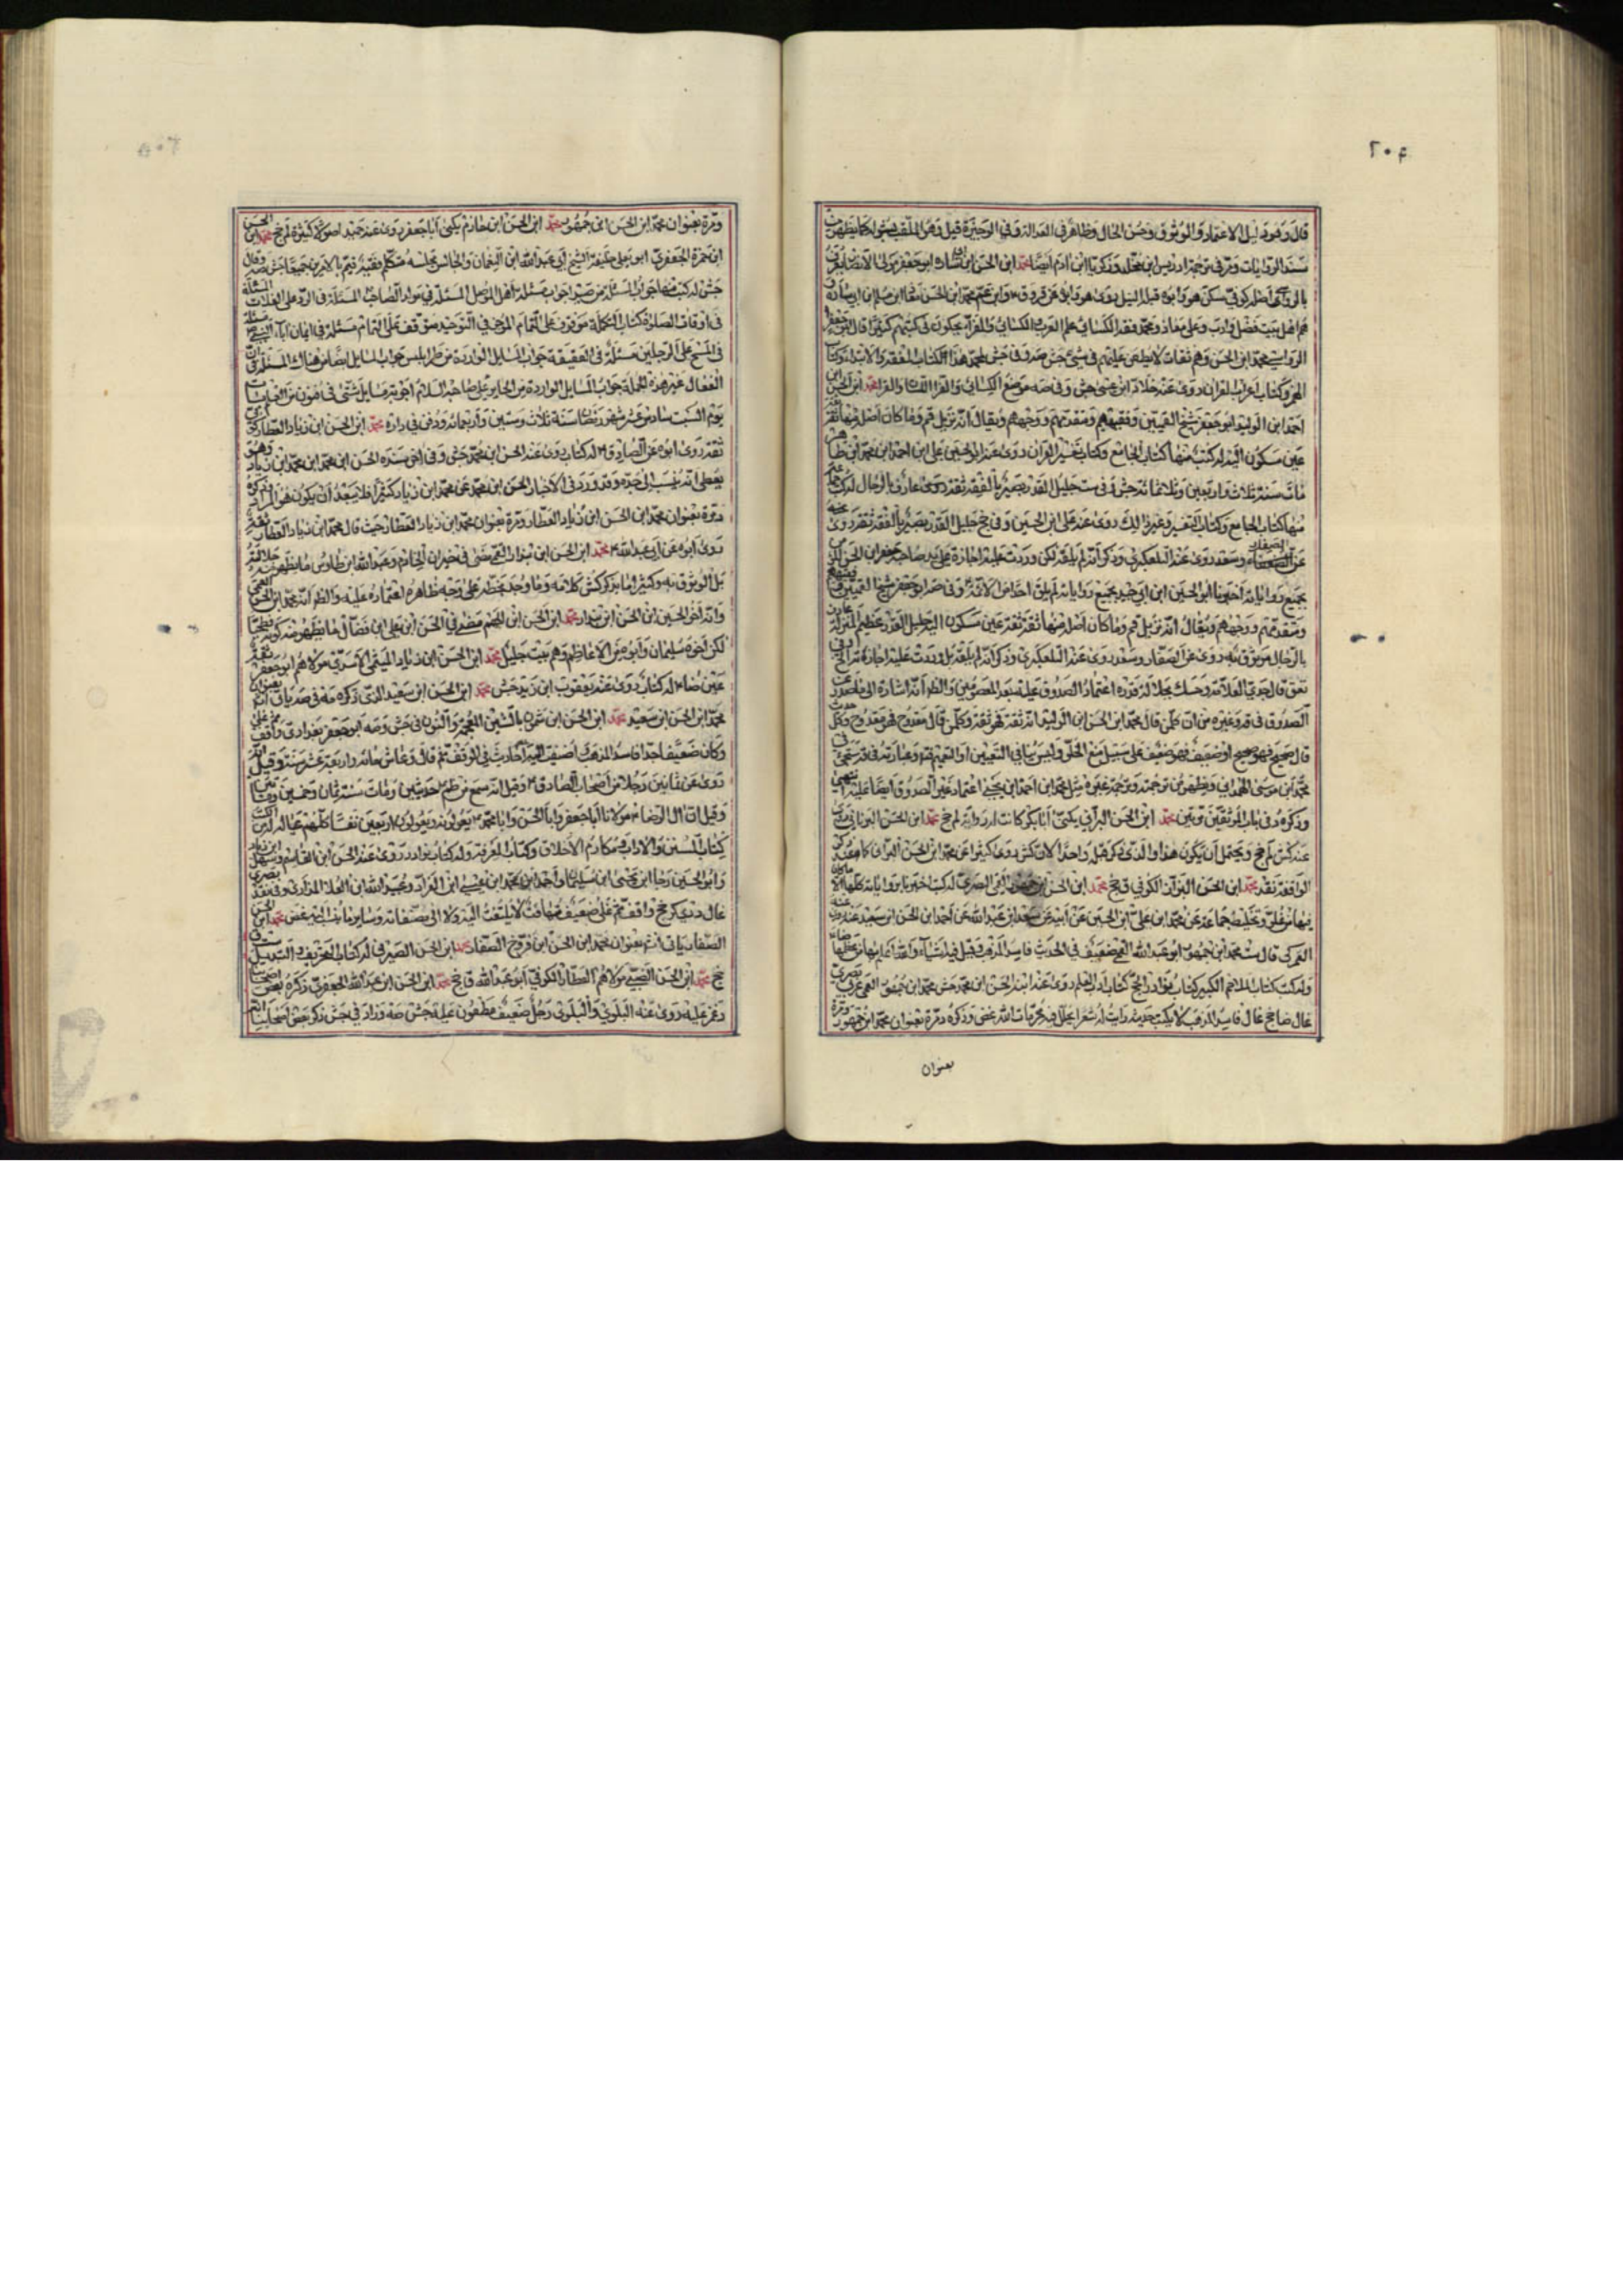 ٢٠٤
قال وهو دليل الاعتماد والوثوق وحسن الحال وظاهر في العدالة وفي الوجيزة قيل وهو الملقب كما يظهر من
سند الروايات ومر في ترجمة ادريس ابن مخلد وزكريا ابن ادم ايضا محمد ابن الحسن ابن ابي سارة ابو جعفر مولى الانصار يعرف
بالرواسي اصله كوفي سكن هو وابوه قبله النيل روى هو وابوه عن قر وق ٢ وابن عم محمد ابن الحسن معاذ ابن مسلم ابن ابي سارة و
هم اهل بيت فضل وادب وعلى معاذ ومحمد فقه الكسائي علم العرب والكسائي والفراء يحكون في كتبهم كثيرا قال ابو جعفر
الرواسي محمد ابن الحسن وهم ثقات لا يطعن عليهم في شيء جش صه وفي جش لمحمد هذا كتاب الوقف والابتداء وكتاب
الهمز وكتاب اعراب القران روى عنه خلاد ابن عيسى جش وفي صه موضع الكسائي والفراء محمد ابن الحسن ابن
احمد ابن الوليد ابو جعفر شيخ القميين وفقيههم ومتقدمهم ووجههم ويقال انه نزيل قم وما كان اصله منها ثقة ثقة
عين مسكون اليه له كتب منها كتاب الجامع وكتاب تفسير القران روى عنه ابو الحسين علي ابن احمد ابن محمد ابن طاهر
مات سنة ثلاث واربعين وثلاثمائة جش و في ست جليل القدر بصير بالفقه ثقة روى عارف بالرجال له كتب جماعة
منها كتاب الجامع وكتاب التفسير وغير ذلك روى عنه علي ابن الحسين وفي جخ جليل القدر بصير بالفقه ثقة روى عنه
عن الصفار وسعد روى عنه التلعكبري وذكر انه لم يلقه لكن وردت عليه اجازته على يد صاحبه جعفر ابن الحسن
بجميع رواياته اخبرنا ابو الحسين ابن ابي جيد بجميع رواياته لم يلق احدا من الائمة وفي صه ابو جعفر شيخ القميين وفقيههم
ومتقدمهم ووجههم ويقال انه نزيل قم وما كان اصله منها ثقة ثقة عين مسكون اليه جليل القدر عظيم المنزلة عارف
بالرجال موثوق به روى عن الصفار وسعد روى عنه التلعكبري وذكر انه لم يلقه بل وردت عليه اجازته انتهى وفي
تعق قال جدي العلامة وحسبك بجلالة قدره اعتماد الصدوق عليه بعد المعصومين والظ انه اشارة الى ما صدر عن
الصدوق في قدوة غيره من ان كلمن قال محمد ابن الحسن ابن الوليد انه ثقة فهو ثقة وكلمن قال مقدوح فهو مقدوح وكل حديث
قال صحيح فهو صحيح او ضعيف فهو ضعيف
محمد ابن موسى الهمداني ويظهر من ترجمته وترجمة غيره مثل محمد ابن احمد ابن يحيى اعتماد غير الصدوق ايضا عليه انتهى
وذكره د في باب الموثقين مرتين محمد ابن الحسن البراثي يكنى ابا بكر كاتب له رواية لم جخ محمد ابن الحسن البراني روى
عنه كش لم جخ ويحتمل ان يكون هذا والذي ذكر قبل واحدا
الواقفة نقد محمد ابن الحسن البزاز الكوفي ق جخ محمد ابن الحسن ابن جمهور العمي البصري له كتب اخبرنا برواياته كلها الا ما كان
فيها من غلو وتخليط جماعة عن محمد ابن علي ابن الحسين عن ابيه عن سعد ابن عبد الله عن احمد ابن الحسن ابن سعيد عنه
العمركي قال ست محمد ابن جمهور ابو عبد الله العمي ضعيف في الحديث فاسد المذهب وقيل فيه اشياء والله اعلم بها من عظمها
وله كتب كتاب الملاحم الكبير كتاب نوادر الحج كتاب ادب العلم روى عنه ابنه الحسن ابن محمد جش محمد ابن جمهور العمي عربي بصري
غال ضا جخ غال فاسد المذهب لا يكتب حديثه رايت له شعرا يحلل فيه محرمات الله غض وذكره د مرة بعنوان محمد ابن جمهور ومرة
بعنوان
٢٠٥
ومرة بعنوان محمد ابن الحسن ابن جمهور محمد ابن الحسن ابن حازم يكنى ابا جعفر روى عنه حميد اصولا كثيرة لم جخ محمد ابن الحسن
ابن حمزة الجعفري ابو يعلى خليفة الشيخ ابي عبد الله ابن النعمان والجالس مجلسه متكلم فقيه قيم بالامرين جميعا جش صه وقال
جش له كتب منها جواب المسئلة من صيدا جواب مسئلة اهل الموصل المسئلة في مولد الصاحب المسئلة في الرد على الغلاة المسئلة
في اوقات الصلوة كتاب التكملة موقوف على التمام الموجز في التوحيد موقوف على التمام مسئلة في ايمان اباء النبي مسئلة
في المسح على الرجلين مسئلة في العقيقة جواب المسايل الواردة من طرابلس جواب المسايل ايضا من هناك المسئلة في ان
الفعال غير هذه الجملة جواب المسايل الواردة من الحاير على صاحبه السلام اجوبة مسايل شتى في فنون من العلم مات
يوم السبت سادس عشر شهر رمضان سنة ثلاث وستين واربعمائة ودفن في داره محمد ابن الحسن ابن زياد العطار كوفي
ثقة روى ابوه عن الصادق ٢ له كتاب روى عنه الحسن ابن محمد جش وفي اخر سنده الحسن ابن محمد ابن محمد ابن زياد وهو
يعطى انه ينسب الى جده وقد ورد في الاخبار الحسن ابن محمد عن محمد ابن زياد كثيرا فلا يبعد ان يكون هو المراد وذكره
د مرة بعنوان محمد ابن الحسن ابن زياد العطار ومرة بعنوان محمد ابن زياد العطار حيث قال محمد ابن زياد العطار ثقة
روى ابوه عن ابي عبد الله ٢ محمد ابن الحسن ابن بندار القمي مضى في خيران الخادم وعبد الله ابن طاوس ما يظهر منه جلالته
بل الوثوق به وكثيرا ما يذكر كش كلامه وما وجد بخطه على وجه ظاهره اعتماده عليه والظ انه محمد ابن الحسن القمي
وانه اخو الحسين ابن الحسن ابن بندار محمد ابن الحسن ابن الجهم مضى في الحسن ابن علي ابن فضال ما يظهر منه كونه فطحيا
لكن اخوه سليمان وابوه من الاعاظم وهم بيت جليل محمد ابن الحسن ابن زياد الميثمي الاسدي مولاهم ابو جعفر ثقة
عين ضا ٢ له كتاب روى عنه يعقوب ابن يزيد جش محمد ابن الحسن ابن سعيد
محمد ابن الحسن ابن سعيد محمد ابن الحسن ابن شمون بالشين المعجمة والنون في جش وصه ابو جعفر بغدادي واقف ثم غلى
وكان ضعيفا جدا فاسد المذهب اضيف اليه احاديث في الوقف ثم قال وعاش مائة واربعة عشر سنة وقيل انه
روى عن ثمانين رجلا من اصحاب الصادق ٢ وقيل انه سمع من ظم ٢ حديثين ومات سنة ثمان وخمسين ومائتين
وقيل ان ال الرضا ٢ مولانا ابا جعفر وابا الحسن وابا محمد ٢ يعولونه ويعولون اربعين نفسا كلهم عياله له من الكتب
كتاب السنن والاداب ومكارم الاخلاق وكتاب المعرفة وله كتاب نوادر روى عنه الحسن ابن القاسم وسهل ابن زياد
وابو الحسين رجا ابن يحيى ابن سليمان واحمد ابن محمد ابن عيسى ابن العراد وعبيد الله ابن العلا المذاري وفي نقد بصري
غال دي كر جخ واقف ثم غلى ضعيف متهافت لا يلتفت اليه ولا الى مصنفاته وساير ما ينسب اليه غض محمد ابن الحسن
الصفار ياتي انشم بعنوان محمد ابن الحسن ابن فروخ الصفار محمد ابن الحسن الصيرفي له كتاب التحريف والتبديل ست ق
جخ محمد ابن الحسن الضبي مولاهم العطار الكوفي ابو عبد الله ق جخ محمد ابن الحسن ابن عبد الله الجعفري ذكره بعض اصحابنا
وغمز عليه روى عنه البلوي والبلوي رجل ضعيف مطعون عليه جش صه وزاد في جش ذكر بعض اصحابنا انه